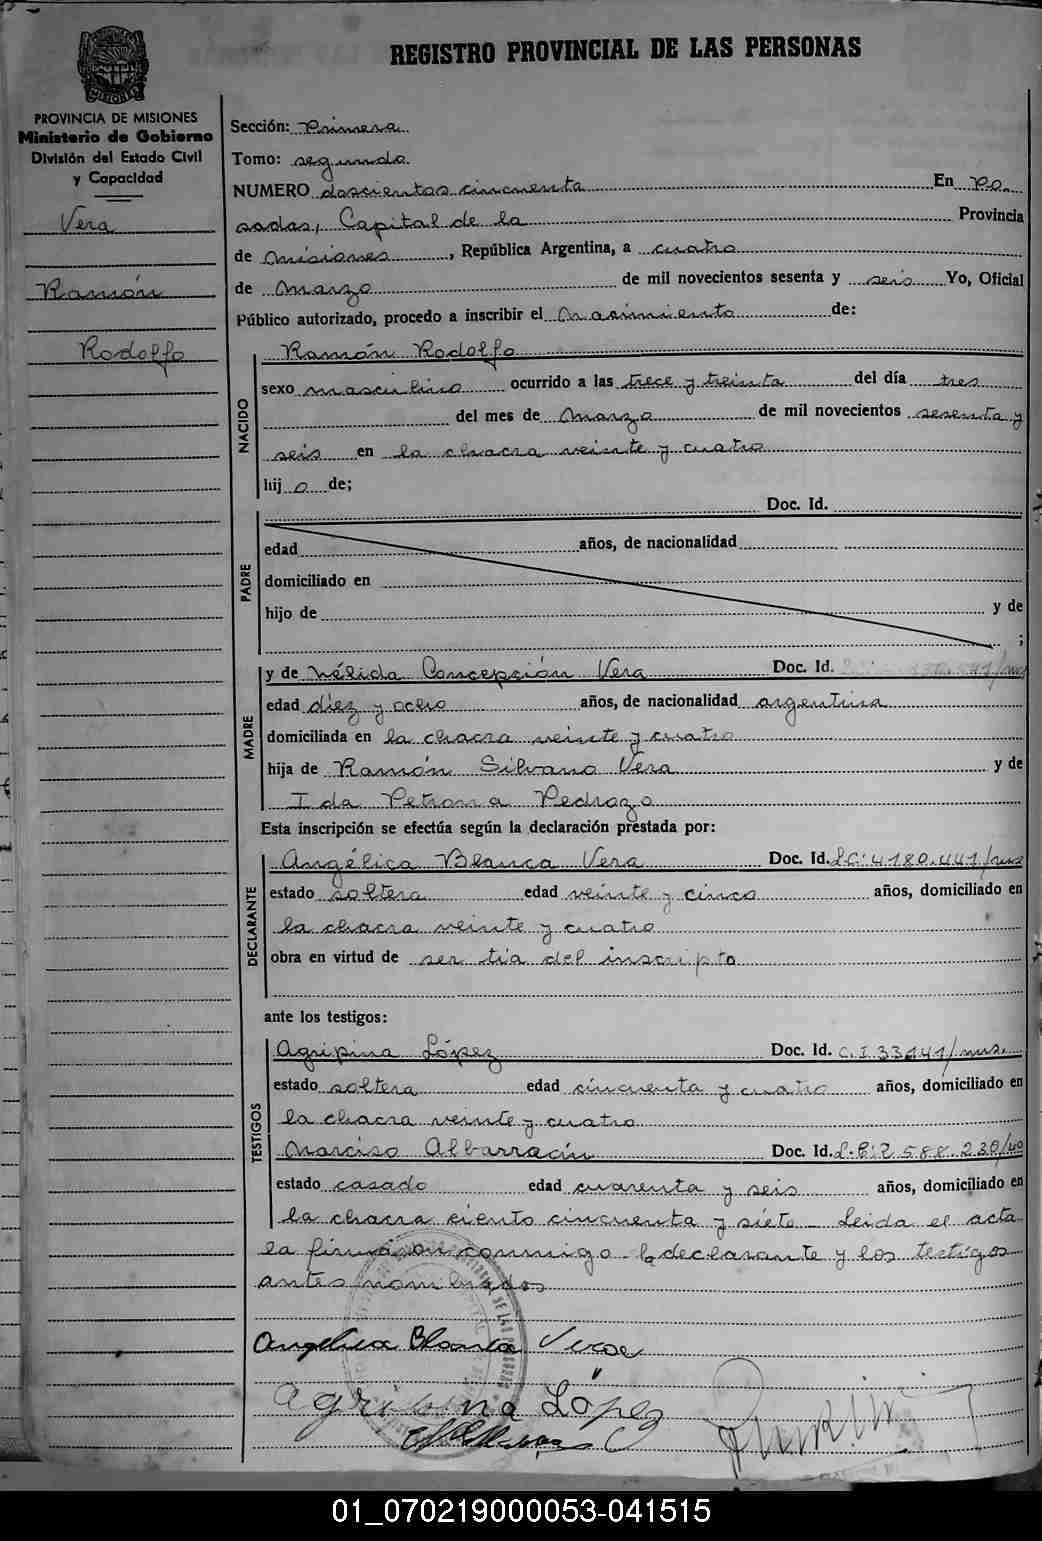 REGISTRO PROVINCIAL DE LAS PERSONAS
MISIONES
PROVINCIA DE MISIONES
Ministerio de Gobierno
División del Estado Civil
y Capacidad
Vera
Ramón
Rodolfo
Sección: Primera
Tomo: segundo
NUMERO doscientos cincuenta En Po
sadas, Capital de la Provincia
de Misiones, República Argentina, a cuatro
de Marzo de mil novecientos sesenta y seis Yo, Oficial
Público autorizado, procedo a inscribir el Nacimiento de:
NACIDO
Ramón Rodolfo
sexo masculino ocurrido a las trece y treinta del día tres
del mes de Marzo de mil novecientos sesenta y
seis en la chacra veinte y cuatro
hij o de;
PADRE
Doc. Id.
edad años, de nacionalidad
domiciliado en
hijo de y de
;
MADRE
y de Nélida Concepción Vera Doc. Id.
edad diez y ocho años, de nacionalidad argentina
domiciliada en la chacra veinte y cuatro
hija de Ramón Silvano Vera y de
Ida Petrona Pedrozo
Esta inscripción se efectúa según la declaración prestada por:
DECLARANTE
Angélica Blanca Vera Doc. Id. LC: 4180.441/mns
estado soltera edad veinte y cinco años, domiciliado en
la chacra veinte y cuatro
obra en virtud de ser tía del inscripto
ante los testigos:
TESTIGOS
Agripina López Doc. Id. C.I. 33141/mns.
estado soltera edad cincuenta y cuatro años, domiciliado en
la chacra veinte y cuatro
Narciso Albarracín Doc. Id.
estado casado edad cuarenta y seis años, domiciliado en
la chacra ciento cincuenta y siete Leída el acta
la firmaron conmigo la declarante y los testigos
antes nombrados
Angelica Blanca Vera
Agripina López
01_070219000053-041515